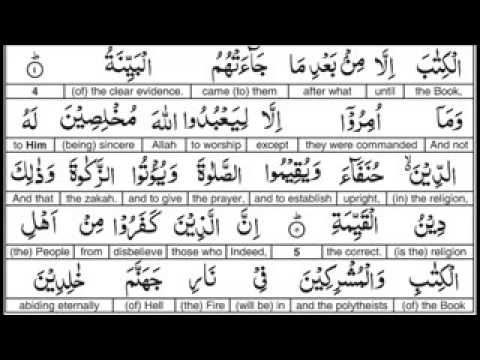 الْكِتٰبَ اِلَّا مِنْۢ بَعْدِ مَا جَآءَتْهُمُ الْبَيِّنَةُ ؕ ٤
the Book, until after what came (to) them (of) the clear evidence. 4
وَمَاۤ اُمِرُوْۤا اِلَّا لِيَعْبُدُوا اللّٰهَ مُخْلِصِيْنَ لَهُ
And not they were commanded except to worship Allah (being) sincere to Him
الدِّيْنَ ۙ حُنَفَآءَ وَيُقِيْمُوا الصَّلٰوةَ وَيُؤْتُوا الزَّكٰوةَ وَذٰلِكَ
(in) the religion, upright, and to establish the prayer, and to give the zakah. And that
دِيْنُ الْقَيِّمَةِ ؕ ٥ اِنَّ الَّذِيْنَ كَفَرُوْا مِنْ اَهْلِ
(is the) religion the correct. 5 Indeed, those who disbelieve from (the) People
الْكِتٰبِ وَالْمُشْرِكِيْنَ فِيْ نَارِ جَهَنَّمَ خٰلِدِيْنَ
(of) the Book and the polytheists (will be) in (the) Fire (of) Hell abiding eternally